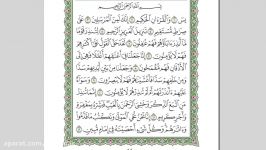 بِسْمِ اللَّهِ الرَّحْمَٰنِ الرَّحِيمِ
يسٓ ١ وَالْقُرْءَانِ الْحَكِيمِ ٢ إِنَّكَ لَمِنَ الْمُرْسَلِينَ ٣ عَلَىٰ
صِرَاطٍ مُّسْتَقِيمٍ ٤ تَنزِيلَ الْعَزِيزِ الرَّحِيمِ ٥ لِتُنذِرَ قَوْمًا
مَّآ أُنذِرَ ءَابَآؤُهُمْ فَهُمْ غَٰفِلُونَ ٦ لَقَدْ حَقَّ الْقَوْلُ عَلَىٰٓ أَكْثَرِهِمْ
فَهُمْ لَا يُؤْمِنُونَ ٧ إِنَّا جَعَلْنَا فِىٓ أَعْنَٰقِهِمْ أَغْلَٰلًا فَهِىَ إِلَى
الْأَذْقَانِ فَهُم مُّقْمَحُونَ ٨ وَجَعَلْنَا مِنۢ بَيْنِ أَيْدِيهِمْ سَدًّا
وَمِنْ خَلْفِهِمْ سَدًّا فَأَغْشَيْنَٰهُمْ فَهُمْ لَا يُبْصِرُونَ ٩ وَسَوَآءٌ
عَلَيْهِمْ ءَأَنذَرْتَهُمْ أَمْ لَمْ تُنذِرْهُمْ لَا يُؤْمِنُونَ ١٠ إِنَّمَا تُنذِرُ
مَنِ اتَّبَعَ الذِّكْرَ وَخَشِىَ الرَّحْمَٰنَ بِالْغَيْبِ فَبَشِّرْهُ بِمَغْفِرَةٍ
وَأَجْرٍ كَرِيمٍ ١١ إِنَّا نَحْنُ نُحْىِ الْمَوْتَىٰ وَنَكْتُبُ مَا قَدَّمُوا
وَءَاثَٰرَهُمْ وَكُلَّ شَىْءٍ أَحْصَيْنَٰهُ فِىٓ إِمَامٍ مُّبِينٍ ١٢
aparat.com